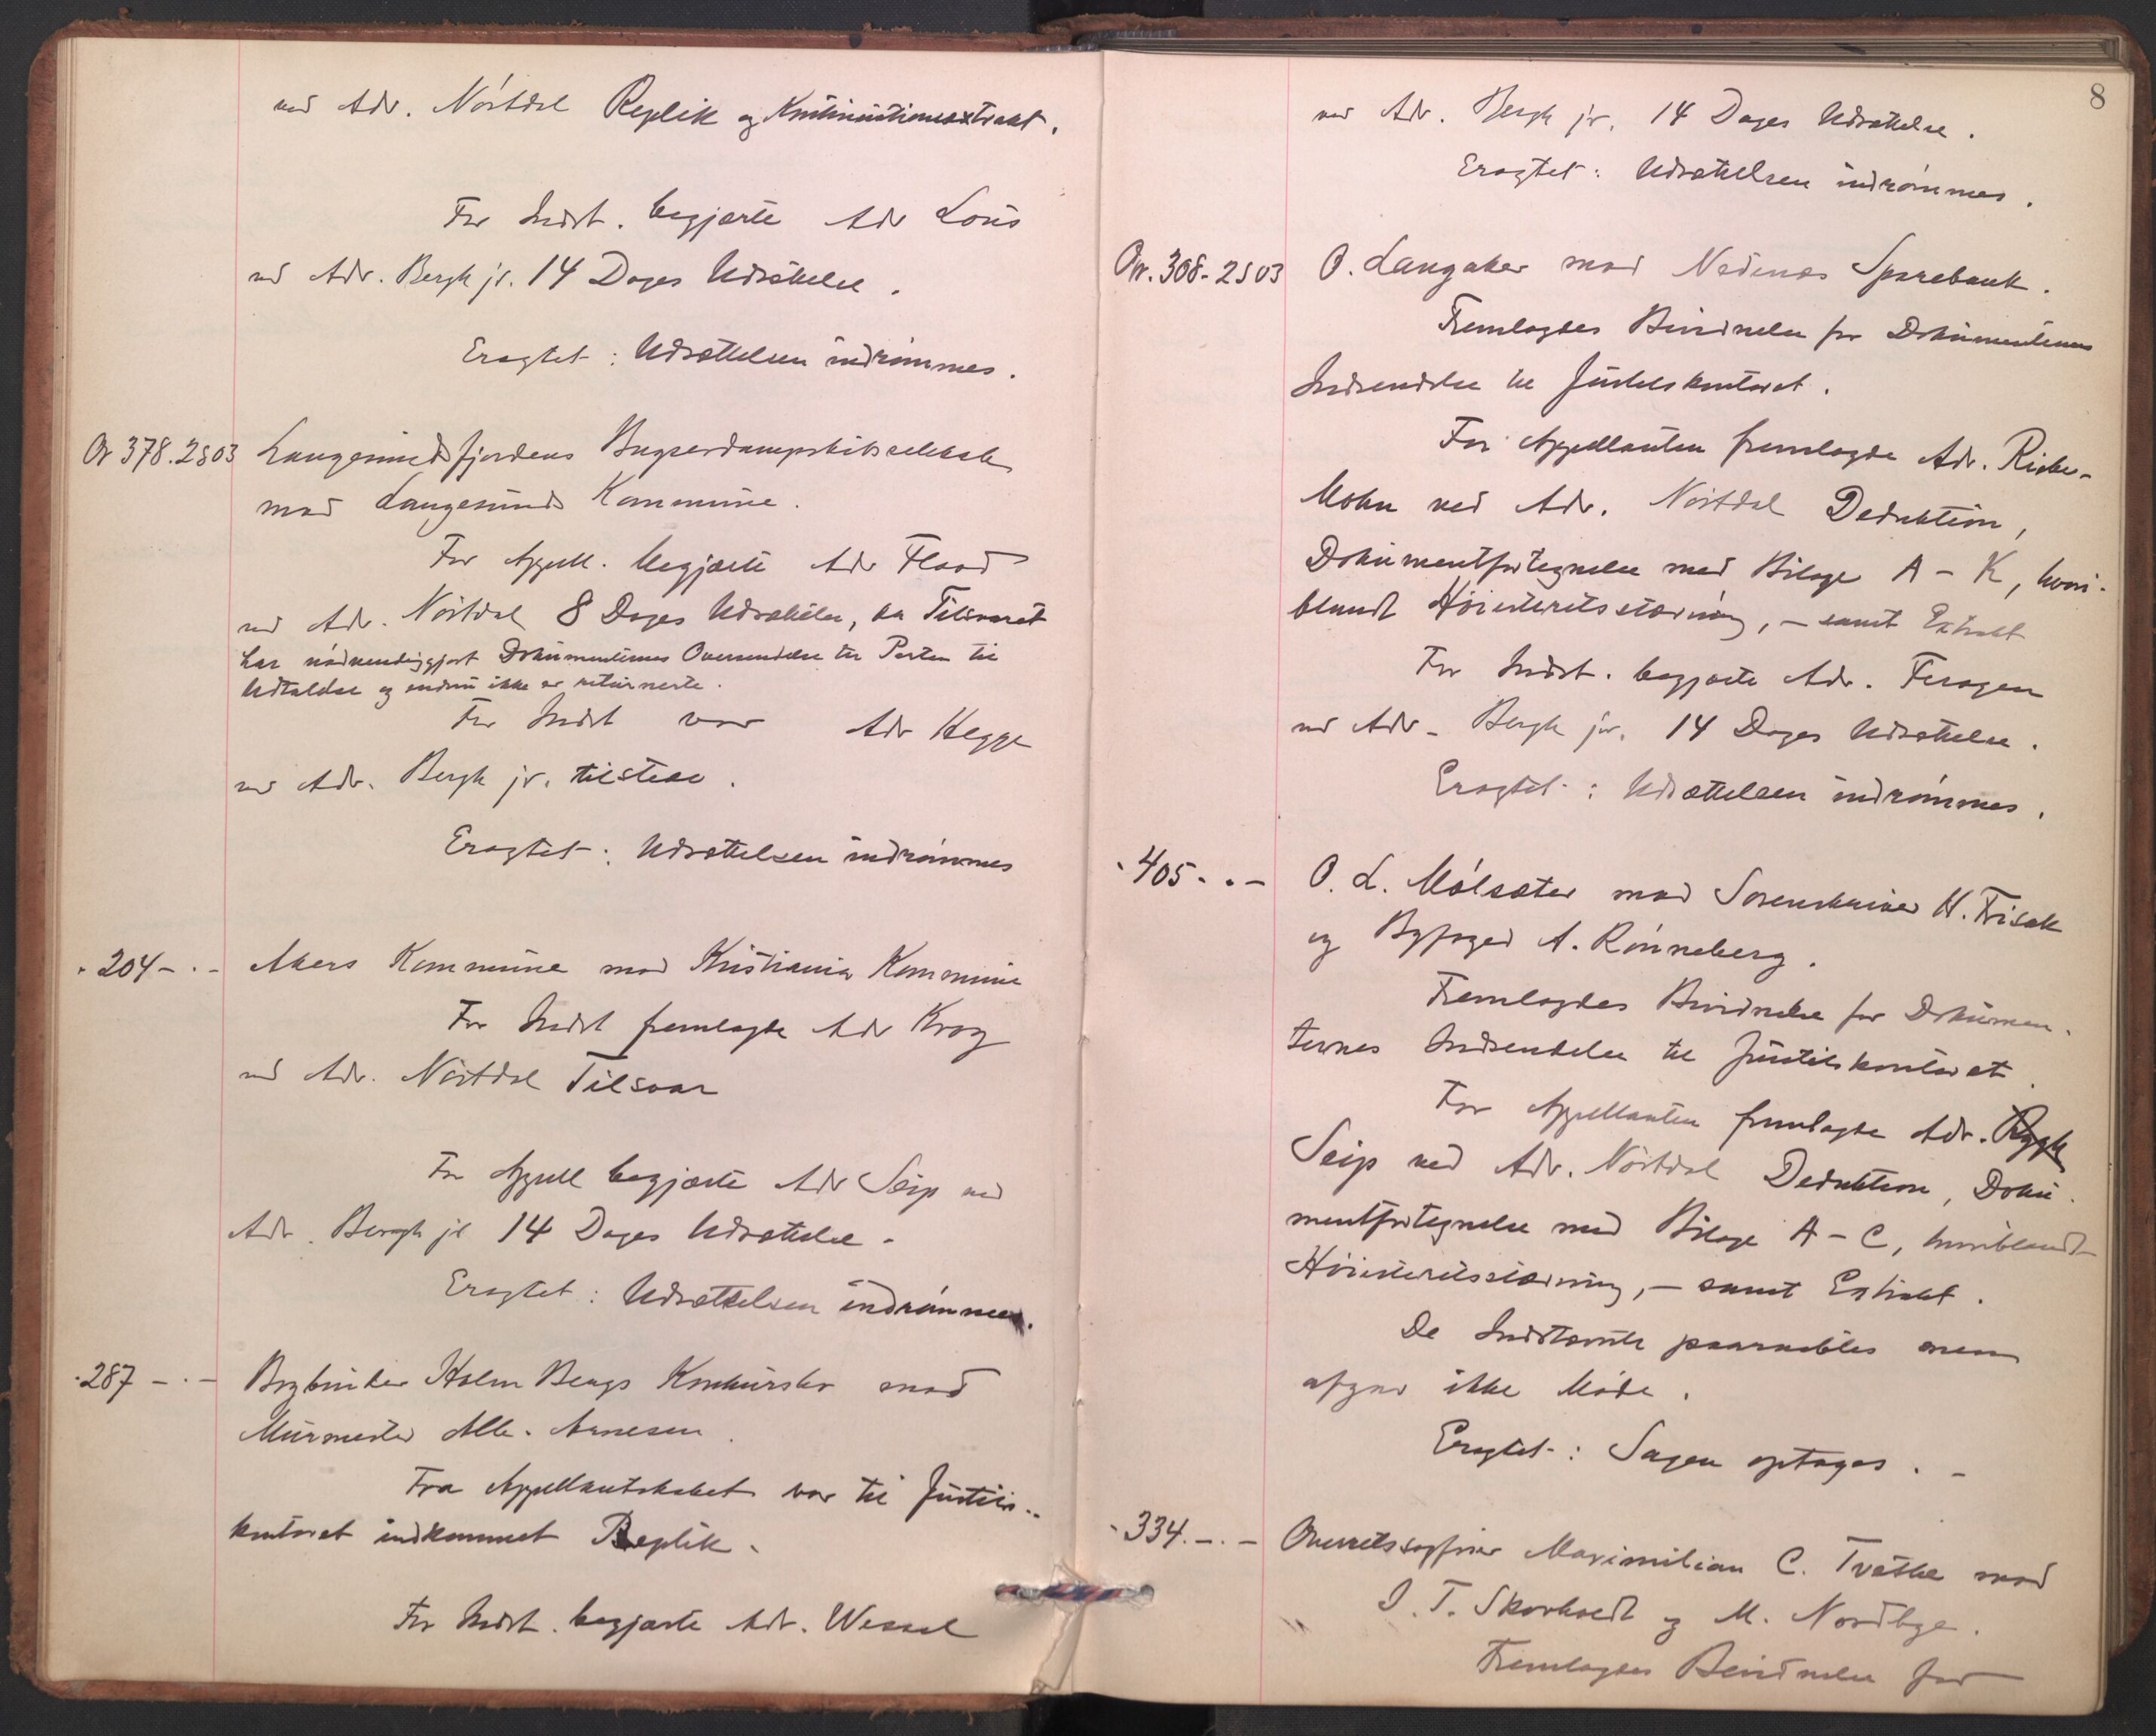 ved Adv. Nörtdal Replik og Kontinuationsextrakt.
For Indst. begjærte Adv Lous
ved Adv. Bergh jr. 14 Dages Udsættelse.
Eragtet: Udsættelsen indrömmes.
Or 378.2s03 Langesundsfjordens Bugserdampskibsselskab
mod Langesunds Kommune.
For Appell. begjærte Adv Flood
ved Adv. Nörtdal 8 Dages Udsættelse, da Tilsvaret
har nödvendiggjort Dokumenternes Oversendelse til Parten til
Udtalelse og endnu ikke er returnerte.
For Indst var Adv Hegge
ved Adv. Bergh jr. tilstede.
Eragtet: Udsættelsen indrömmes
" 204 - " - Akers Kommune mod Kristiania Kommune
For Indst fremlagde Adv Krog
ved Adv. Nörtdal Tilsvar
For Appell begjærte Adv Seip ved
Adv. Bergh jr 14 Dages Udsættelse.
Eragtet: Udsættelsen indrömmes.
" 287 - " - Bogbinder Holm Bergs Konkursbo mod
Murmester Alb. Arnesen.
Fra Appellantskabet var til Justits-
kontoret indkommet Replik.
For Indst. begjærte Adv. Wessel
8
ved Adv. Bergh jr. 14 Dages Udsættelse.
Eragtet: Udsættelsen indrömmes.
Or. 308-2s03 O. Langaker mod Nedenæs Sparebank.
Fremlagdes Bevidnelse for Dokumenternes
Indsendelse til Justitskontoret.
For Appellanten fremlagde Adv. Ricber-
Mohn ved Adv. Nörtdal Deduktion,
Dokumentfortegnelse med Bilage A - K, hvori-
blandt Höiesteretsstævning, - samt Extrakt
For Indst. begjærte Adv. Feragen
ved Adv. Bergh jr. 14 Dages Udsættelse.
Eragtet: Udsættelsen indrömmes.
" 405 - " - O. L. Mölsæter mod Sorenskriver H. Frisak
og Byfoged A. Rönneberg.
Fremlagdes Bevidnelse for Dokumen-
ternes Indsendelse til Justitskontoret.
For Appellanten fremlagde Adv.
Seip ved Adv. Nörtdal Deduktion, Doku-
mentfortegnelse med Bilage A - C, hvoriblandt
Höiesteretsstævning, - samt Extrakt.
De Indstævnte paaraabtes men
afgav ikke Möde.
Eragtet: Sagen optages. -
" 334. - " - Overretssagförer Maximilian C. Tvethe mod
I. T. Skovholdt og M. Nordbye.
Fremlagdes Bevidnelse for